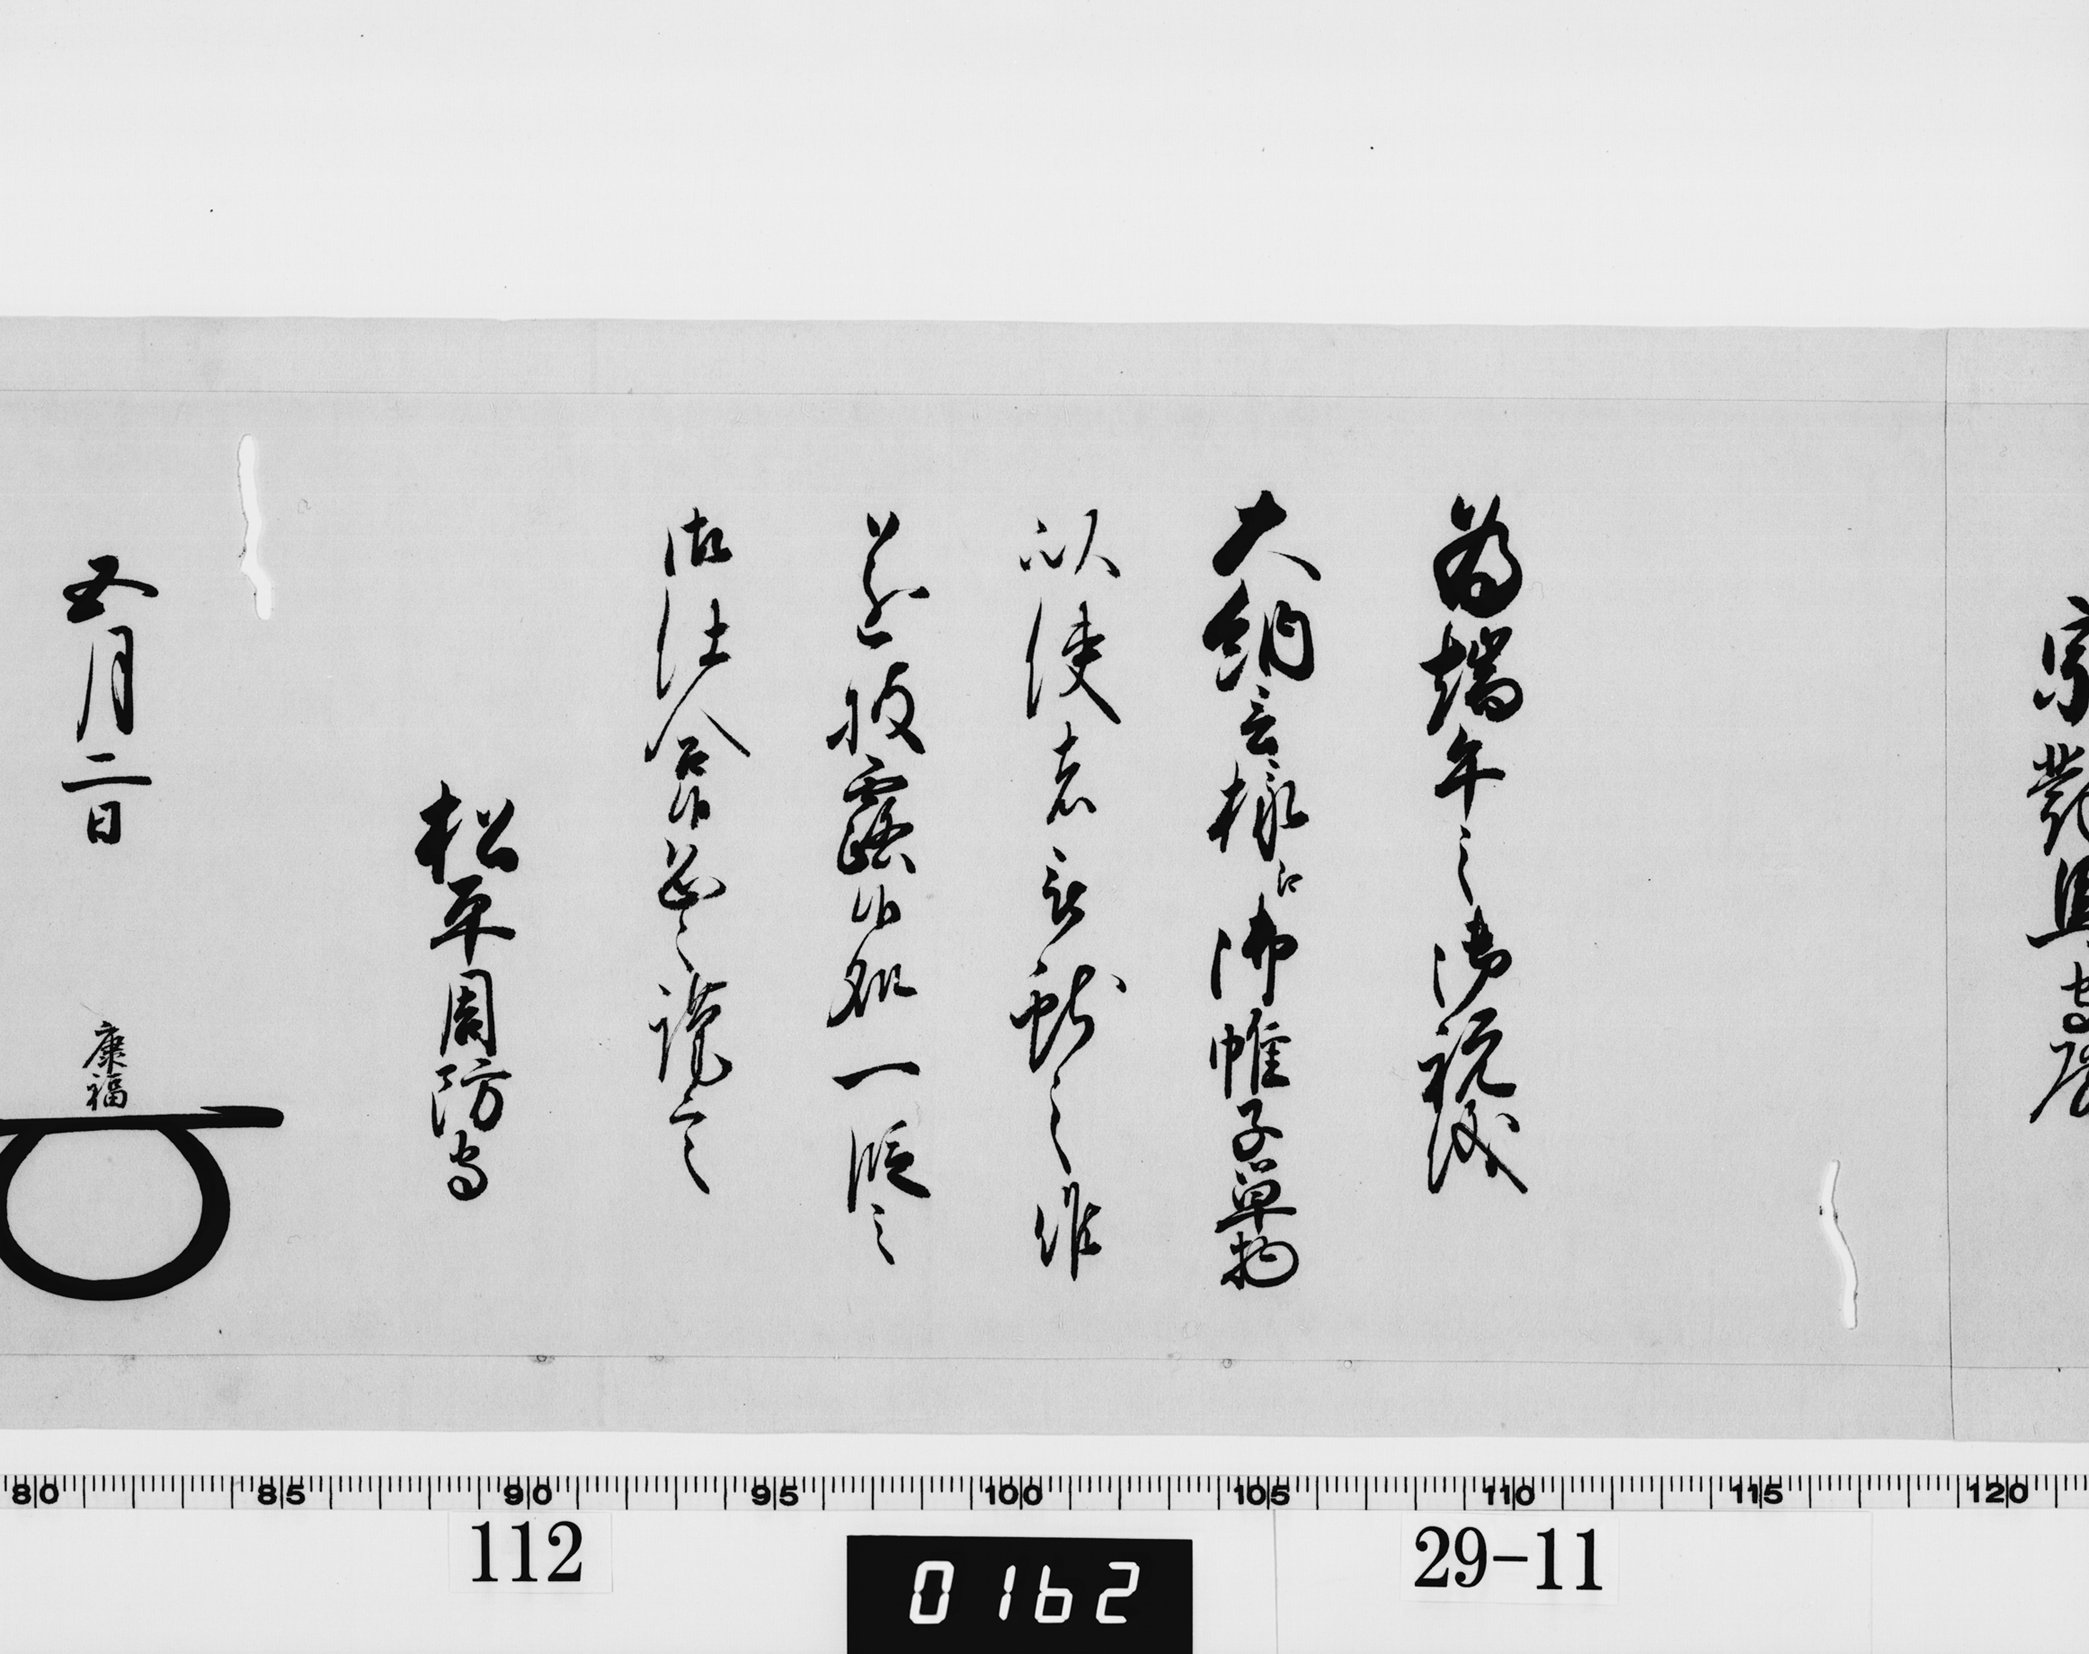 宗對馬守殿
為端午之御祝儀
大納言様江御帷子単物
以使者被献之候
遂披露候処一段之
御仕合候恐々謹言
松平周防守
五月二日
康福
80 85 90 95 100 105 110 115 120
112
0162
29-11